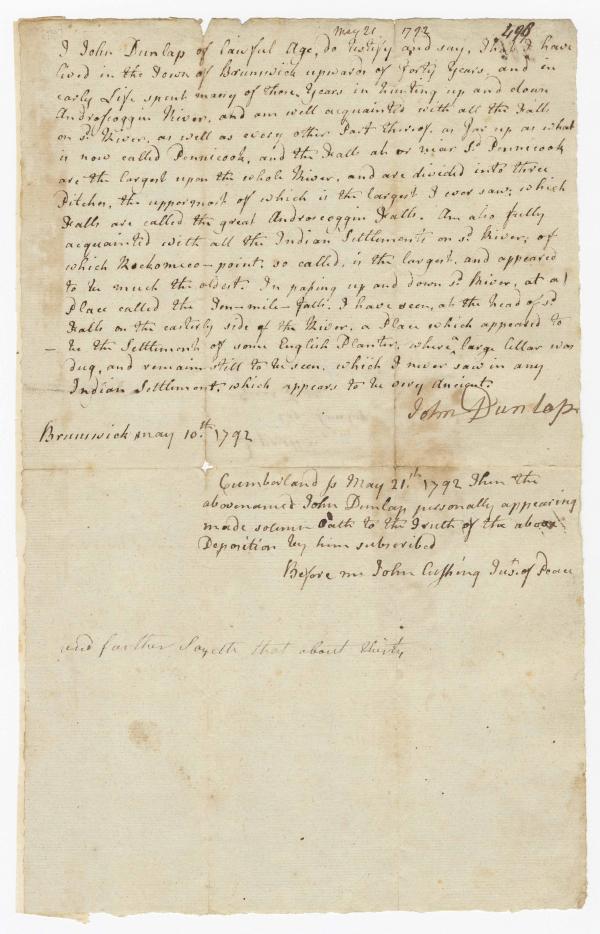 May 21 1792 498
I John Dunlap of lawful Age, do testify and say, That I have
lived in the Town of Brunswick upwards of forty Years, and in
early Life spent many of those Years in Hunting up and down
Androscoggin River, and am well acquainted with all the Falls
on sd. River, as well as every other Part thereof as far up as what
is now called Pennicook, and the Falls at or near sd. Pennicook
are the largest upon the whole River, and are divided into three
Pitches, the uppermost of which is the largest I ever saw; which
Falls are called the great Androscoggin Falls. Am also fully
acquainted with all the Indian Settlements on sd. River; of
which Rockomeco-point, so called, is the largest, and appeared
to be much the oldest. In passing up and down sd. River, at a
Place called the Ten-mile-Falls, I have seen, at the head of sd.
Falls on the easterly side of the River, a Place which appeared to
be the Settlement of some English Planter, where a large Cellar was
dug, and remains still to be seen, which I never saw in any
Indian Settlement, which appears to be very Ancient.
John Dunlap
Brunswick May 10.th 1792
Cumberland ss May 21.th 1792 Then the
abovenamed John Dunlap personally appearing
made solemn Oath to the Truth of the above
Deposition by him subscribed
Before me John Cushing Just. of Peace
and farther Sayeth that about thirty